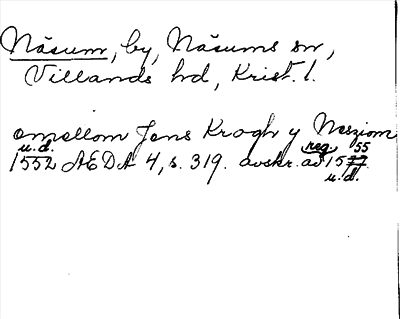 Näsum, by, Näsums sn,
Villands hd, Krist. l.
emellom Jens Krogh y Nesziom
u.d. reg 55
1552 AEDA 4, s. 319. avskr. av 1577.
u.d.